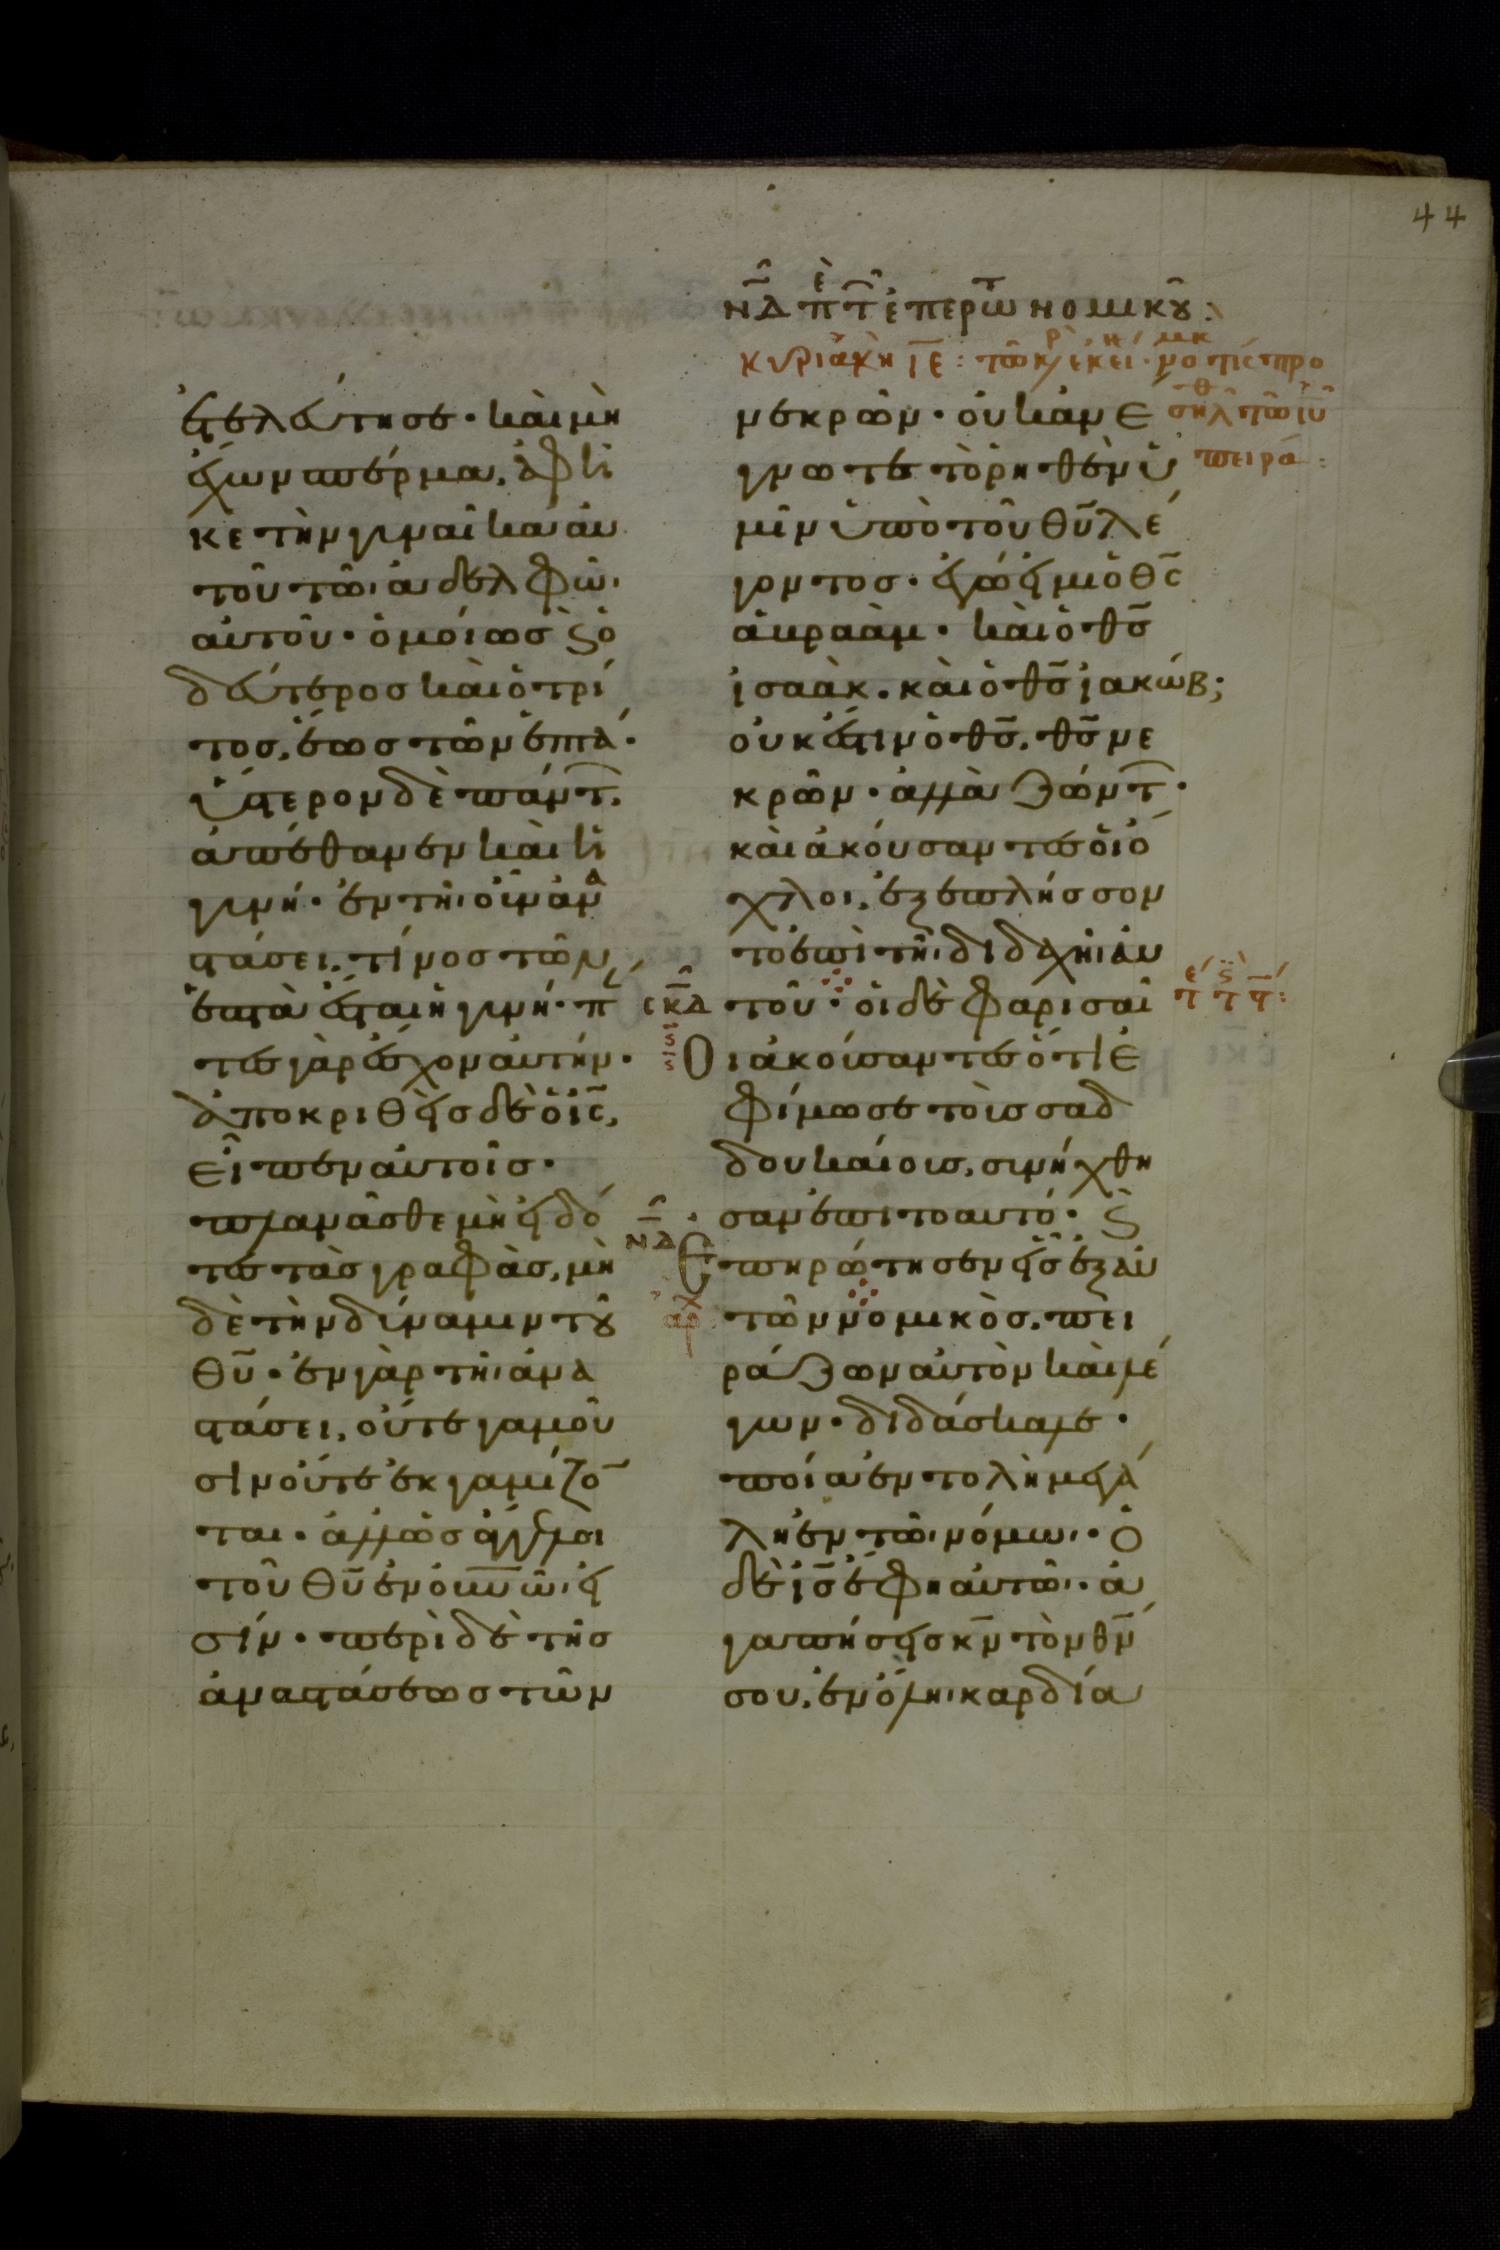 44
ΝΔ
ἐτελεύτησε· καὶ μὴ
ἔχων σπέρμα, ἀφῆ
κε τὴν γυναῖκα αυ
τοῦ τῶι ἀδελφῶι
αὐτοῦ· ὁμοίως ϗ ὁ
δεύτερος καὶ ὁ τρί
τος, ἕως τῶν ἑπτά·
ὕστερον δὲ πάντ̅,
ἀπέθανεν καὶ ἡ
γυνή· ἐν τῆι οὖν ἀνα
στάσει, τίνος τῶν
ἑπτὰ ἔσται ἡ γυνή· π
τες γὰρ ἔσχον αὐτήν·
ἀποκριθεὶς δὲ ὁ ι̅ς̅,
εἶπεν αὐτοῖς·
πλανᾶσθε μὴ εἰδό
τες τὰς γραφὰς, μὴ
δὲ τὴν δύναμιν τοῦ
θ̅υ̅· ἐν γὰρ τῆι ἀνα
στάσει, οὔτε γαμοῦ
σιν οὔτε ἐκγαμίζο̅
ται· ἀλλ' ὡς ἄγγελοι
τοῦ θ̅υ̅ ἐν ο̅υ̅ν̅ω̅ι εἰ
σίν· περὶ δὲ τῆς
ἀναστάσεως τῶν
νεκρῶν· οὐκ ἀνέ
γνωτε τὸ ῥηθὲν ὑ
μῖν ὑπὸ τοῦ θ̅υ̅ λέ
γοντος· ἐγώ εἰμι ὁ θ̅ς̅
ἀβραὰμ· καὶ ὁ θ̅ς̅
ἰσαὰκ· καὶ ὁ θ̅ς̅ ἰακώβ;
οὐκ ἔστιν ὁ θ̅ς̅, θ̅ς̅ νε
κρῶν· ἀλλὰ ζώντ̅·
καὶ ἀκούσαντες οἱ ὄ
χλοι, ἐξεπλήσσον
το ἐπὶ τῆι διδαχῆι αὐ
τοῦ· οἱ δὲ φαρισαῖ
οι ἀκούσαντες ὅτι ἐ
φίμωσε τοὺς σαδ
δουκαίους, συνήχθη
σαν ἐπι το αυτό· ϗ
ἐπηρώτησεν εἷς ἐξ αὐ
τῶν νομικὸς, πει
ράζων αὐτὸν καὶ λέ
γων· διδάσκαλε·
ποία ἐντολὴ μεγά
λη ἐν τῶι νόμωι· ὁ
δὲ ι̅ς̅ ἔφη αὐτῶι· ἀ
γαπήσεις κ̅ν̅ τὸν θ̅ν̅
σου, ἐν ὅληι καρδία